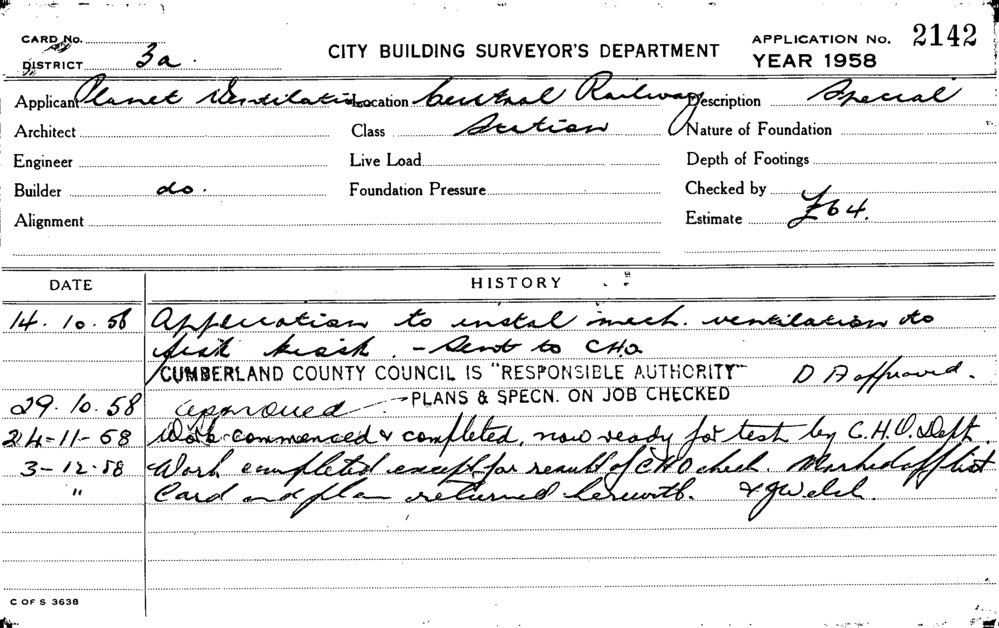 CARD No.
DISTRICT 3a.
CITY BUILDING SURVEYOR'S DEPARTMENT
APPLICATION No. 2142
YEAR 1958
Applicant Planet Ventilation Location Central Railway Description Special
Architect Class Station Nature of Foundation
Engineer Live Load Depth of Footings
Builder do. Foundation Pressure Checked by
Alignment Estimate £64.
DATE HISTORY
14.10.58 Application to instal mech. ventilation to
kiosk. - Sent to CHO
CUMBERLAND COUNTY COUNCIL IS "RESPONSIBLE AUTHORITY" D A approved.
29.10.58 approved PLANS & SPECN. ON JOB CHECKED
24-11-58 Work commenced & completed, now ready for test by C.H.O. Dept.
3-12-58 Work completed except for result of CHO check. Marked off list
" Card and plan returned herewith. Welch.
C OF S 3638